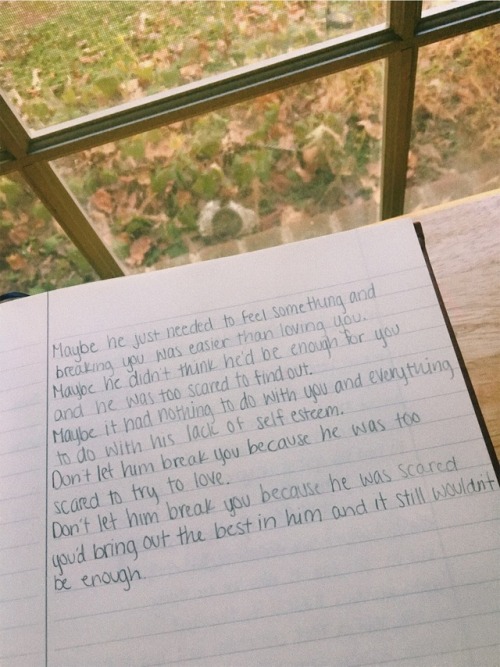 Maybe he just needed to feel something and
breaking you was easier than loving you.
Maybe he didn't think he'd be enough for you
and he was too scared to find out.
Maybe it had nothing to do with you and everything
to do with his lack of self esteem.
Don't let him break you because he was too
scared to try to love.
Don't let him break you because he was scared
you'd bring out the best in him and it still wouldn't
be enough.